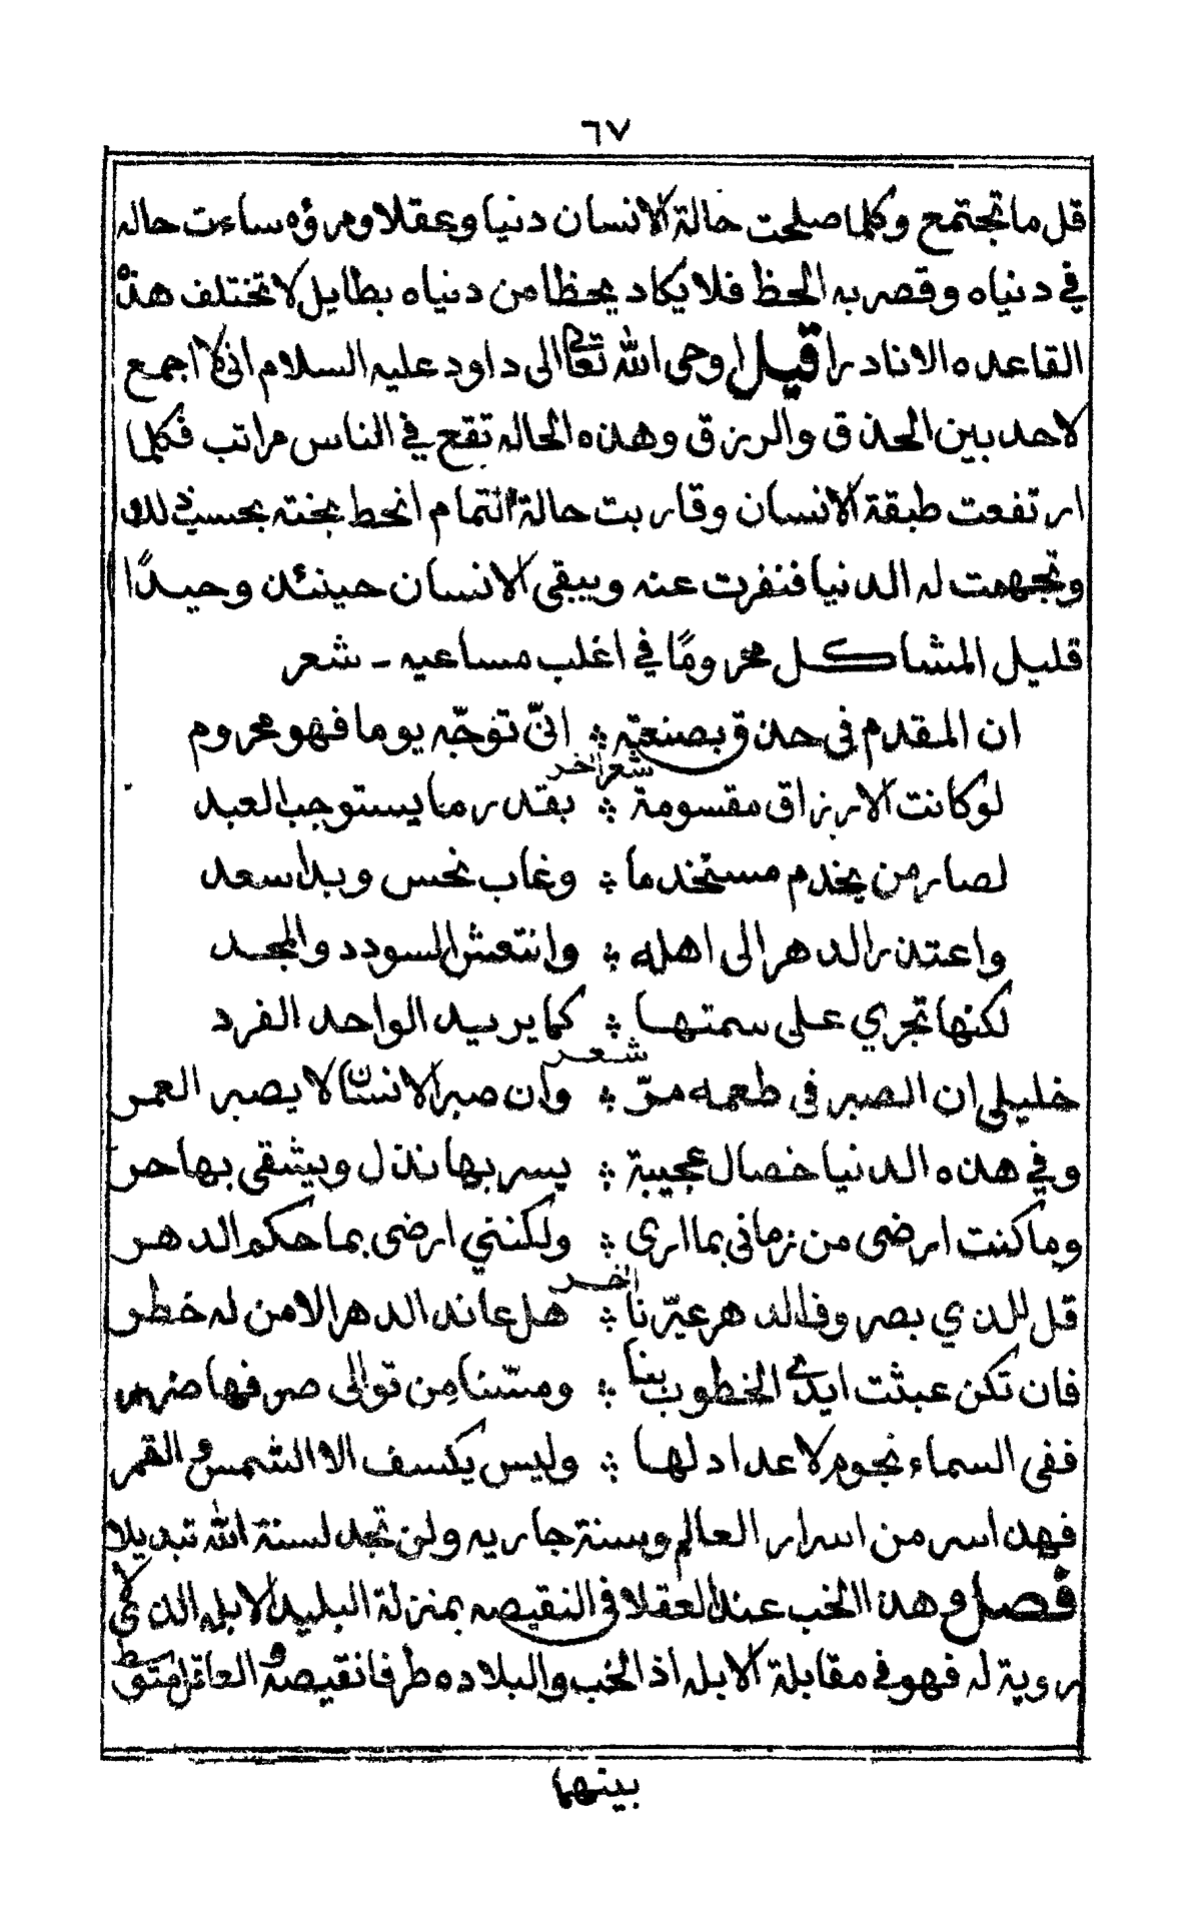 ٦٧
قل ما تجتمع وكلما صلحت حالة الانسان دنيا وعقلا ومروٴه ساءت حاله
في دنياه وقصر به الحظ فلا يكاد يحظا من دنياه بطايل لا تختلف هذه
القاعده الا نادرا قيل اوحى الله تعالى الى داود عليه السلام انى لا اجمع
لاحد بين الحذق والرزق وهذه الحاله تقع في الناس مراتب فكلما
ارتفعت طبقة الانسان وقاربت حالة التمام انحط بخته بحسب ذلك
وتجهمت له الدنيا فنفرت عنه ويبقى الانسان حينئد وحيدًا
قليل المشاكل محرومًا في اغلب مساعيه ـ شعر
ان المقدم فى حذق بصنعته ؞ انىّ توجّه يوما فهو محروم
شعر اخر
لو كانت الارزاق مقسومة ؞ بقدر ما يستوجب العبد
لصار من يخدم مستخدما ؞ وغاب نحس وبدا سعد
واعتذر الدهر الى اهله ؞ وانتعش السودد والمجد
لكنها تجري على سمتها ؞ كما يريد الواحد الفرد
شعر
خليلى ان الصبر فى طعمه مرّ ؞ وان صبر الانسان لا يصبر العمر
وفي هذه الدنيا خصال عجيبة ؞ يسر بها نذل ويشقى بها حر
وما كنت ارضى من زمانى بما ارى ؞ ولكنني ارضى بما حكم الدهر
اخر
قل للذي بصروف الدهر عيّرنا ؞ هل عاند الدهر الا من له خطر
فان تكن عبثت ايدي الخطوب بنا ؞ ومسّنا مِن توالى صرفها ضرر
ففى السماء نجوم لا عداد لها ؞ وليس يكسف الا الشمس والقمر
فهذا سر من اسرار العالم وسنة جاريه ولن تجد لسنة الله تبديلا
فصل وهذا الخب عند العقلا فى النقيصه بمنزلة البليد الابله الذي لا
روية له فهو في مقابلة الابله اذ الخب والبلاده طرفا نقيصه والعاقل متوسط
بينهما